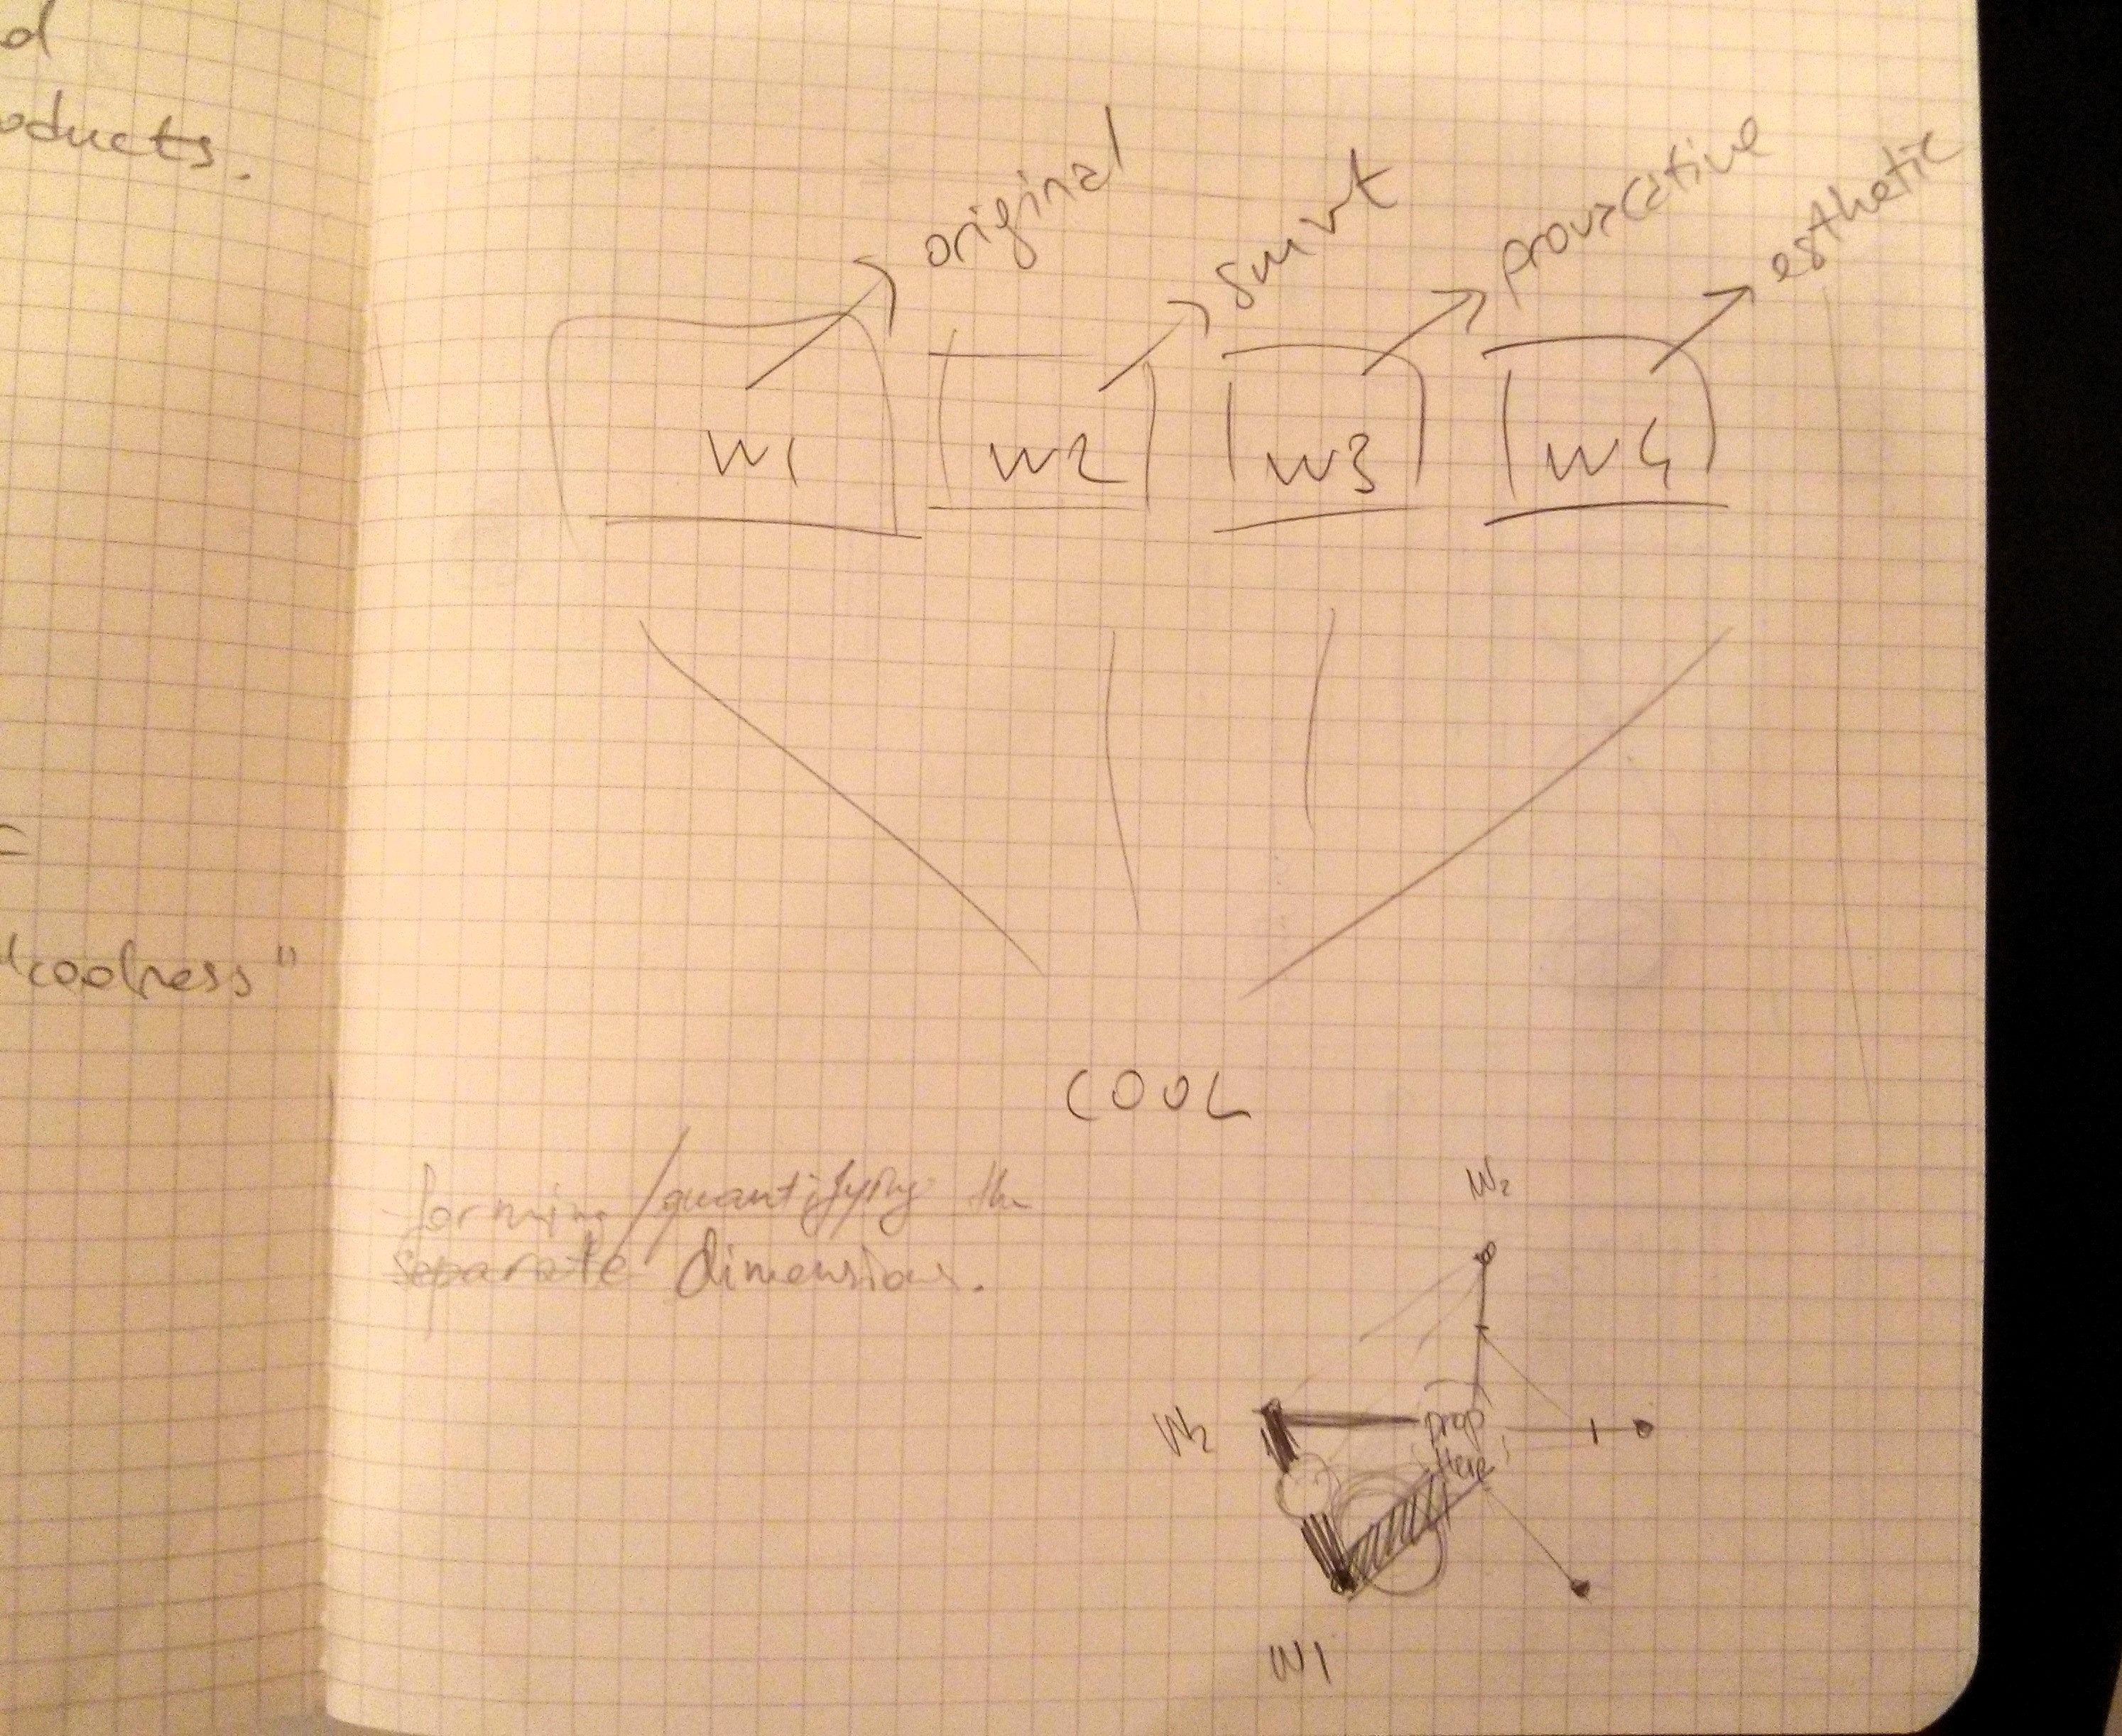 d
oducts.
"coolness"
original
smart
provocative
esthetic
W1
W2
W3
W4
COOL
forming/quantifying the
separate dimensions.
W2
W2
prop
W1